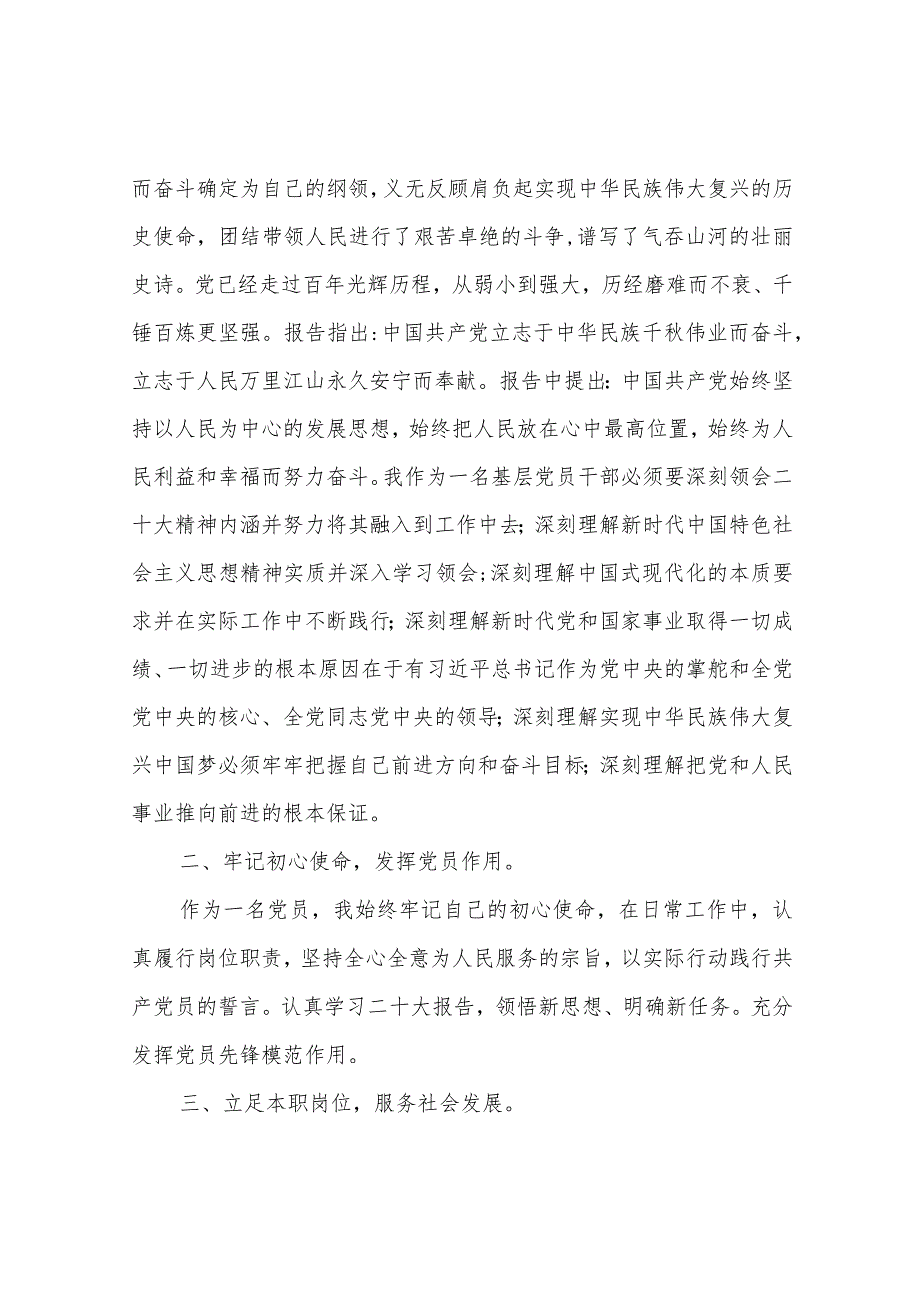 而奋斗确定为自己的纲领,义无反顾肩负起实现中华民族伟大复兴的历
史使命，团结带领人民进行了艰苦卓绝的斗争,谱写了气吞山河的壮丽
史诗。党已经走过百年光辉历程，从弱小到强大，历经磨难而不衰、千
锤百炼更坚强。报告指出:中国共产党立志于中华民族千秋伟业而奋斗，
立志于人民万里江山永久安宁而奉献。报告中提出：中国共产党始终坚
持以人民为中心的发展思想，始终把人民放在心中最高位置，始终为人
民利益和幸福而努力奋斗。我作为一名基层党员干部必须要深刻领会二
十大精神内涵并努力将其融入到工作中去；深刻理解新时代中国特色社
会主义思想精神实质并深入学习领会;深刻理解中国式现代化的本质要
求并在实际工作中不断践行；深刻理解新时代党和国家事业取得一切成
绩、一切进步的根本原因在于有习近平总书记作为党中央的掌舵和全党
党中央的核心、全党同志党中央的领导；深刻理解实现中华民族伟大复
兴中国梦必须牢牢把握自己前进方向和奋斗目标；深刻理解把党和人民
事业推向前进的根本保证。
二、牢记初心使命，发挥党员作用。
作为一名党员，我始终牢记自己的初心使命，在日常工作中，认
真履行岗位职责，坚持全心全意为人民服务的宗旨，以实际行动践行共
产党员的誓言。认真学习二十大报告，领悟新思想、明确新任务。充分
发挥党员先锋模范作用。
三、立足本职岗位，服务社会发展。